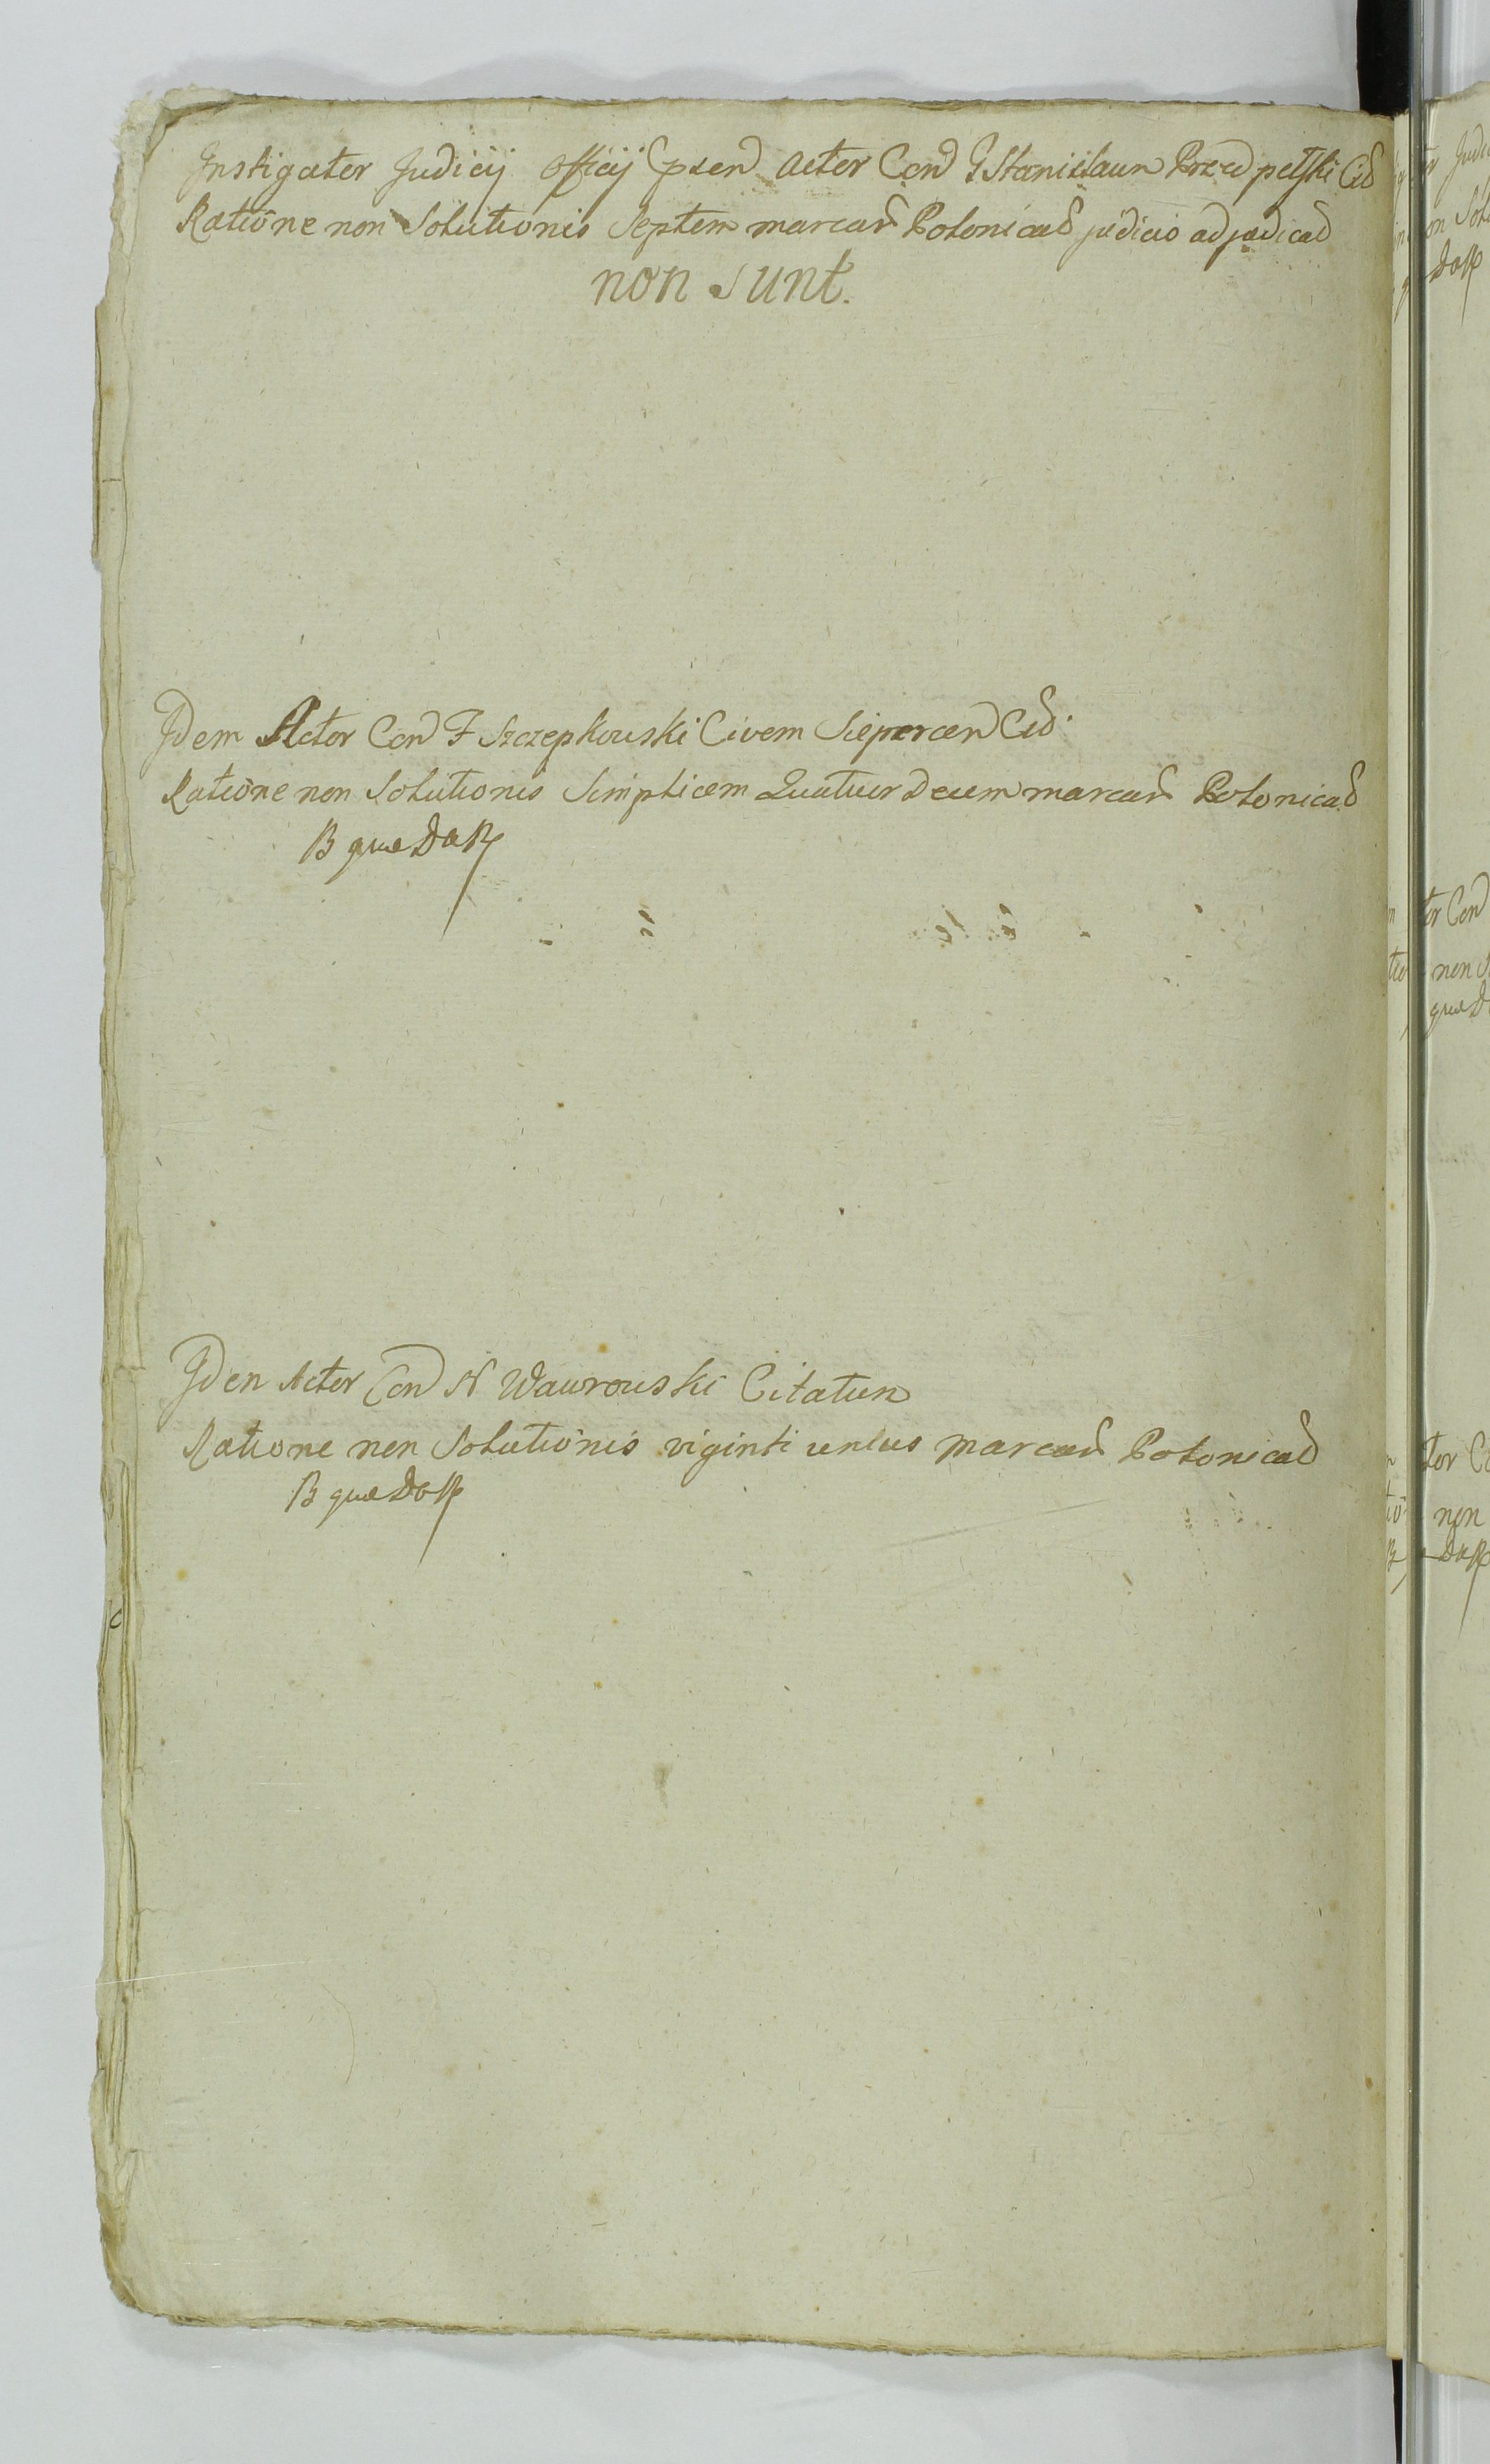 Instigator Judicij Officij Cpsen Actor Con G Stanislaum Przedpelski Cit
Ratione non Solutionis Septem marcar Polonical judicio adjudicad
non sunt.
Idem Actor Con F Szczepkouski Civem Siepercen Cit.
Ratione non Solutionis Simplicem Quatuor Decem marcar Polonical
B quæ Dap
Iden Actor Con N Wawrouski Citatum
Ratione non Solutionis viginti unius marcar Polonical
B quæ Dap